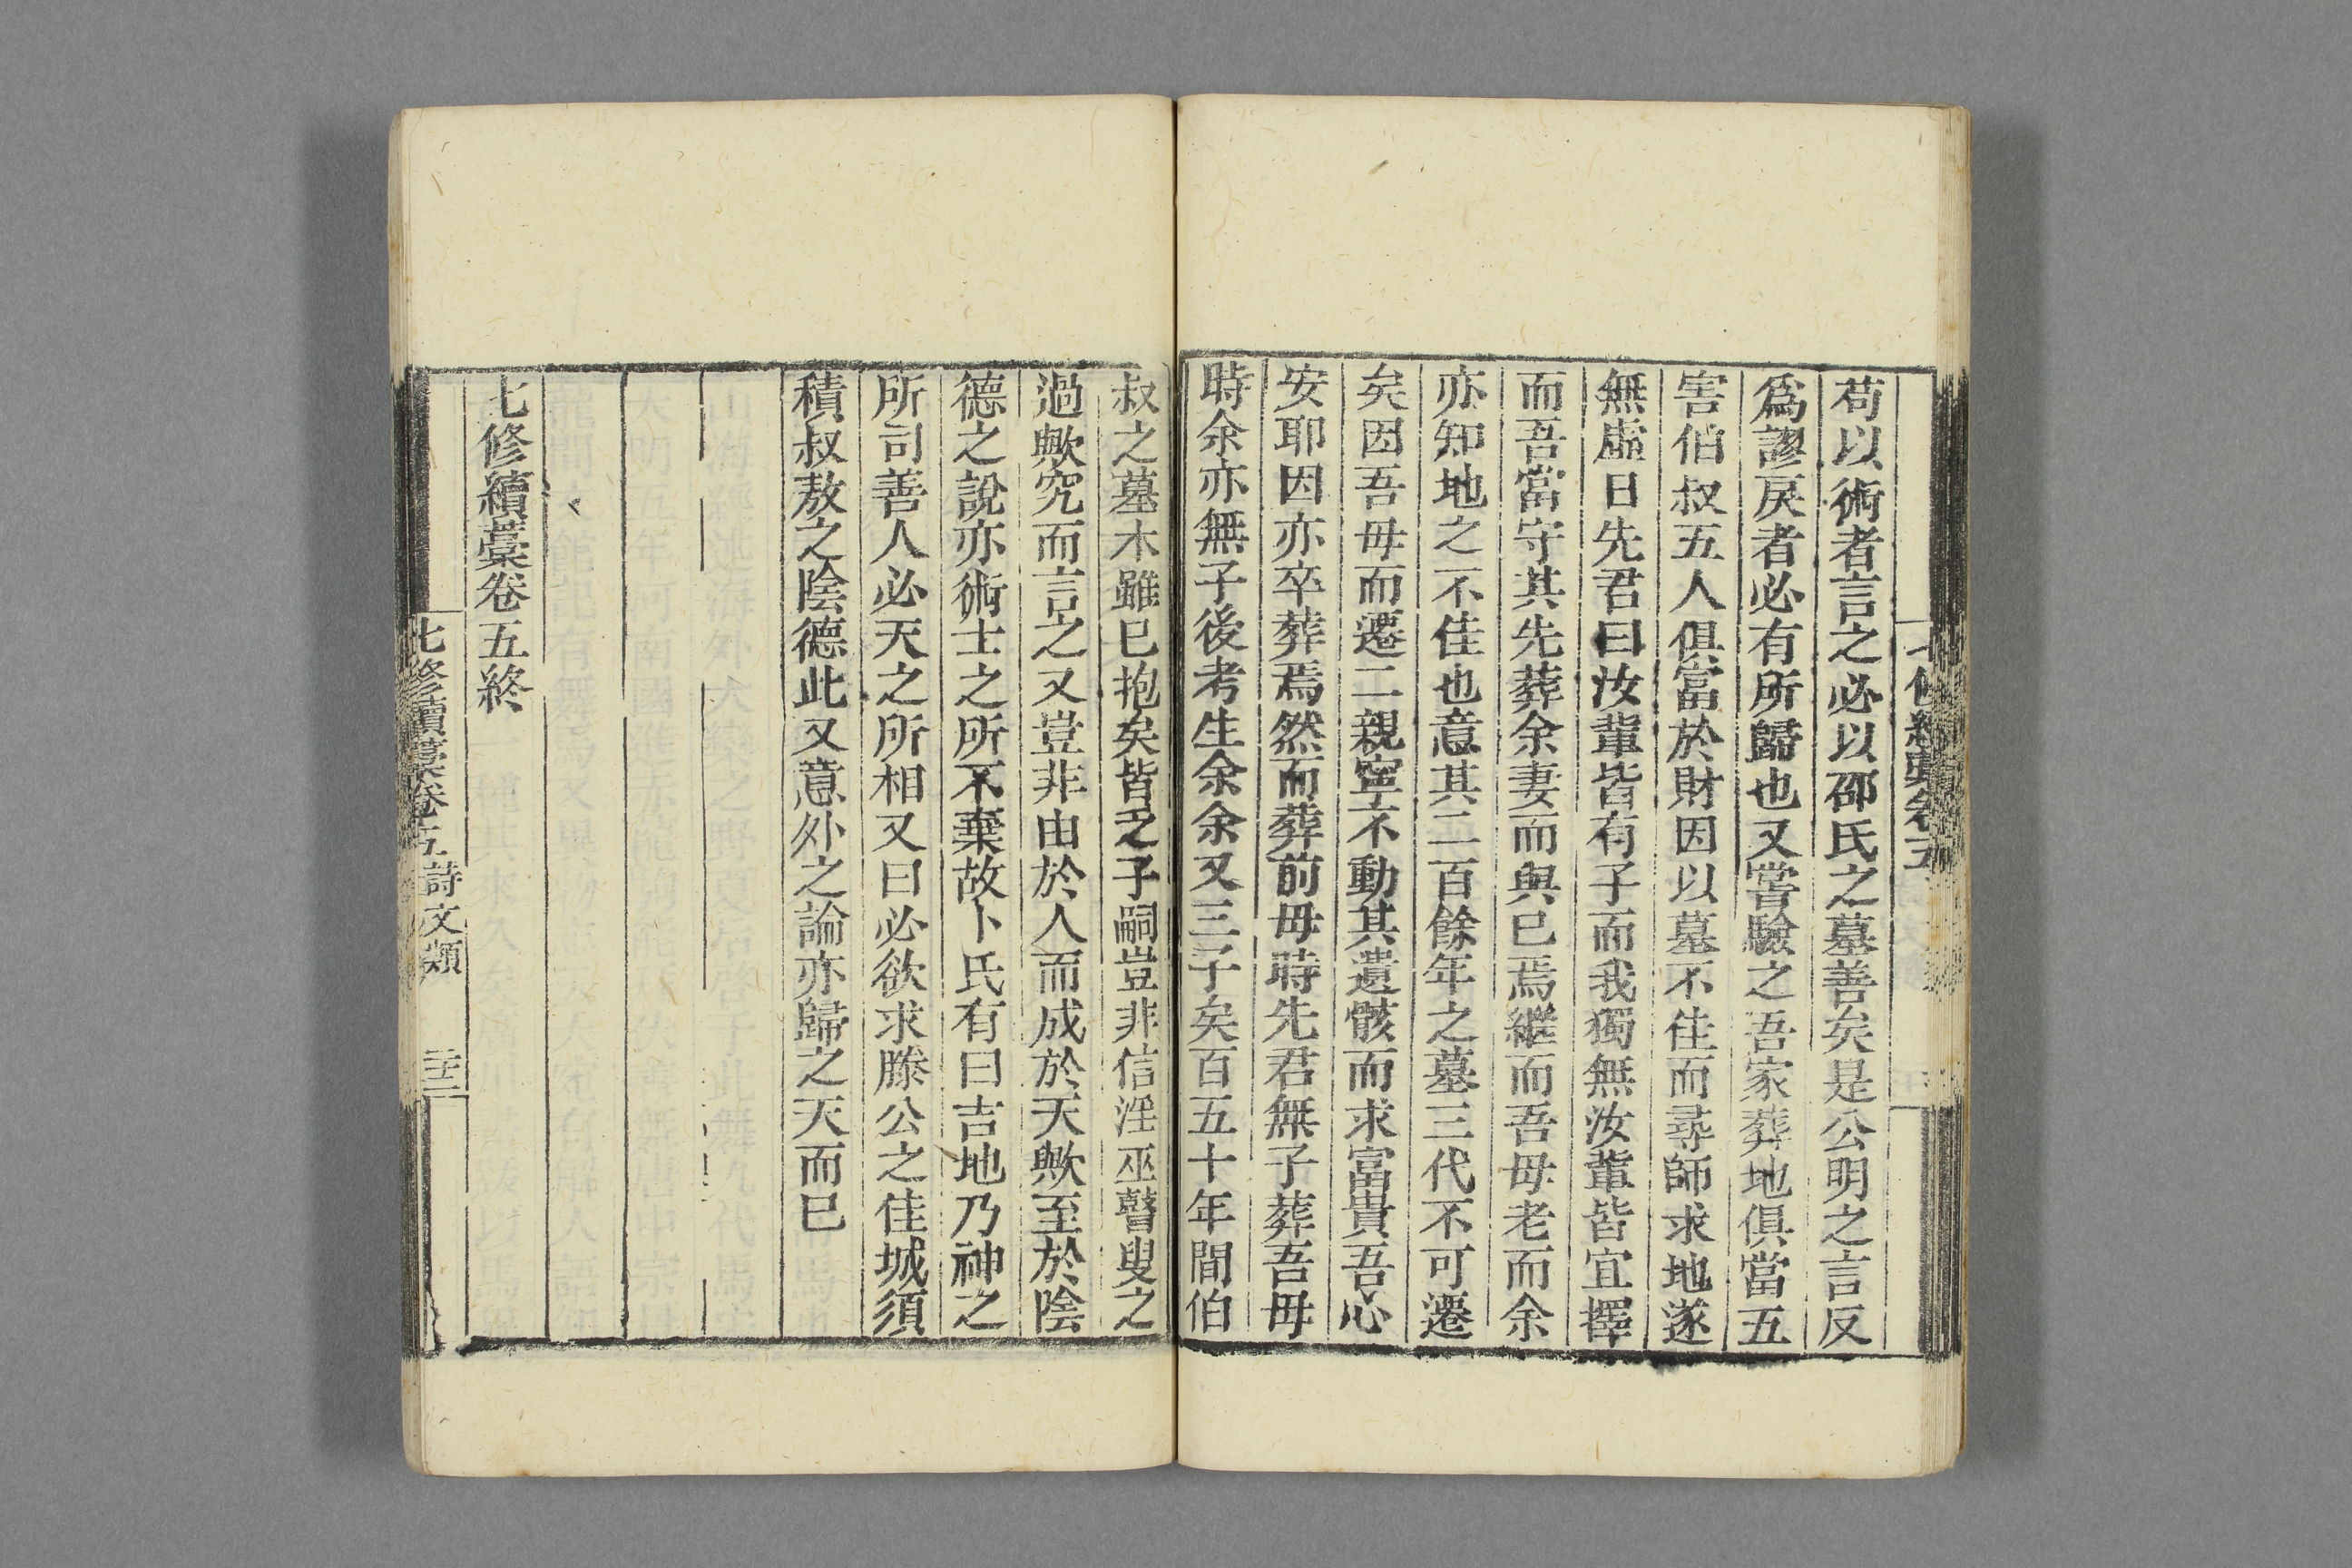 苟以術者言之必以邵氏之墓善矣是公明之言反
爲謬戾者必有所歸也又嘗驗之吾家葬地俱當五
害伯叔五人俱富於財因以墓不佳而尋師求地遂
無虛日先君曰汝輩皆有子而我獨無汝輩皆宜擇
而吾當守其先葬余妻而與已焉繼而吾毋老而余
亦知地之不佳也意其二百餘年之墓三代不可遷
矣因吾毋而遷二親寧不動其遺骸而求富貴吾心
安耶因亦卒葬焉然而葬前毋時先君無子葬吾毋
時余亦無子後考生余余又三子矣百五十年間伯
叔之墓木雖已抱矣皆乏子嗣豈非信淫巫瞽叟之
過歟究而言之又豈非由於人而成於天歟至於陰
德之說亦術士之所不棄故卜氏有曰吉地乃神之
所司善人必天之所相又曰必欲求滕公之佳城須
積叔敖之陰德此又意外之論亦歸之天而已
七修續藁卷五終
七修續藁卷五 詩文類